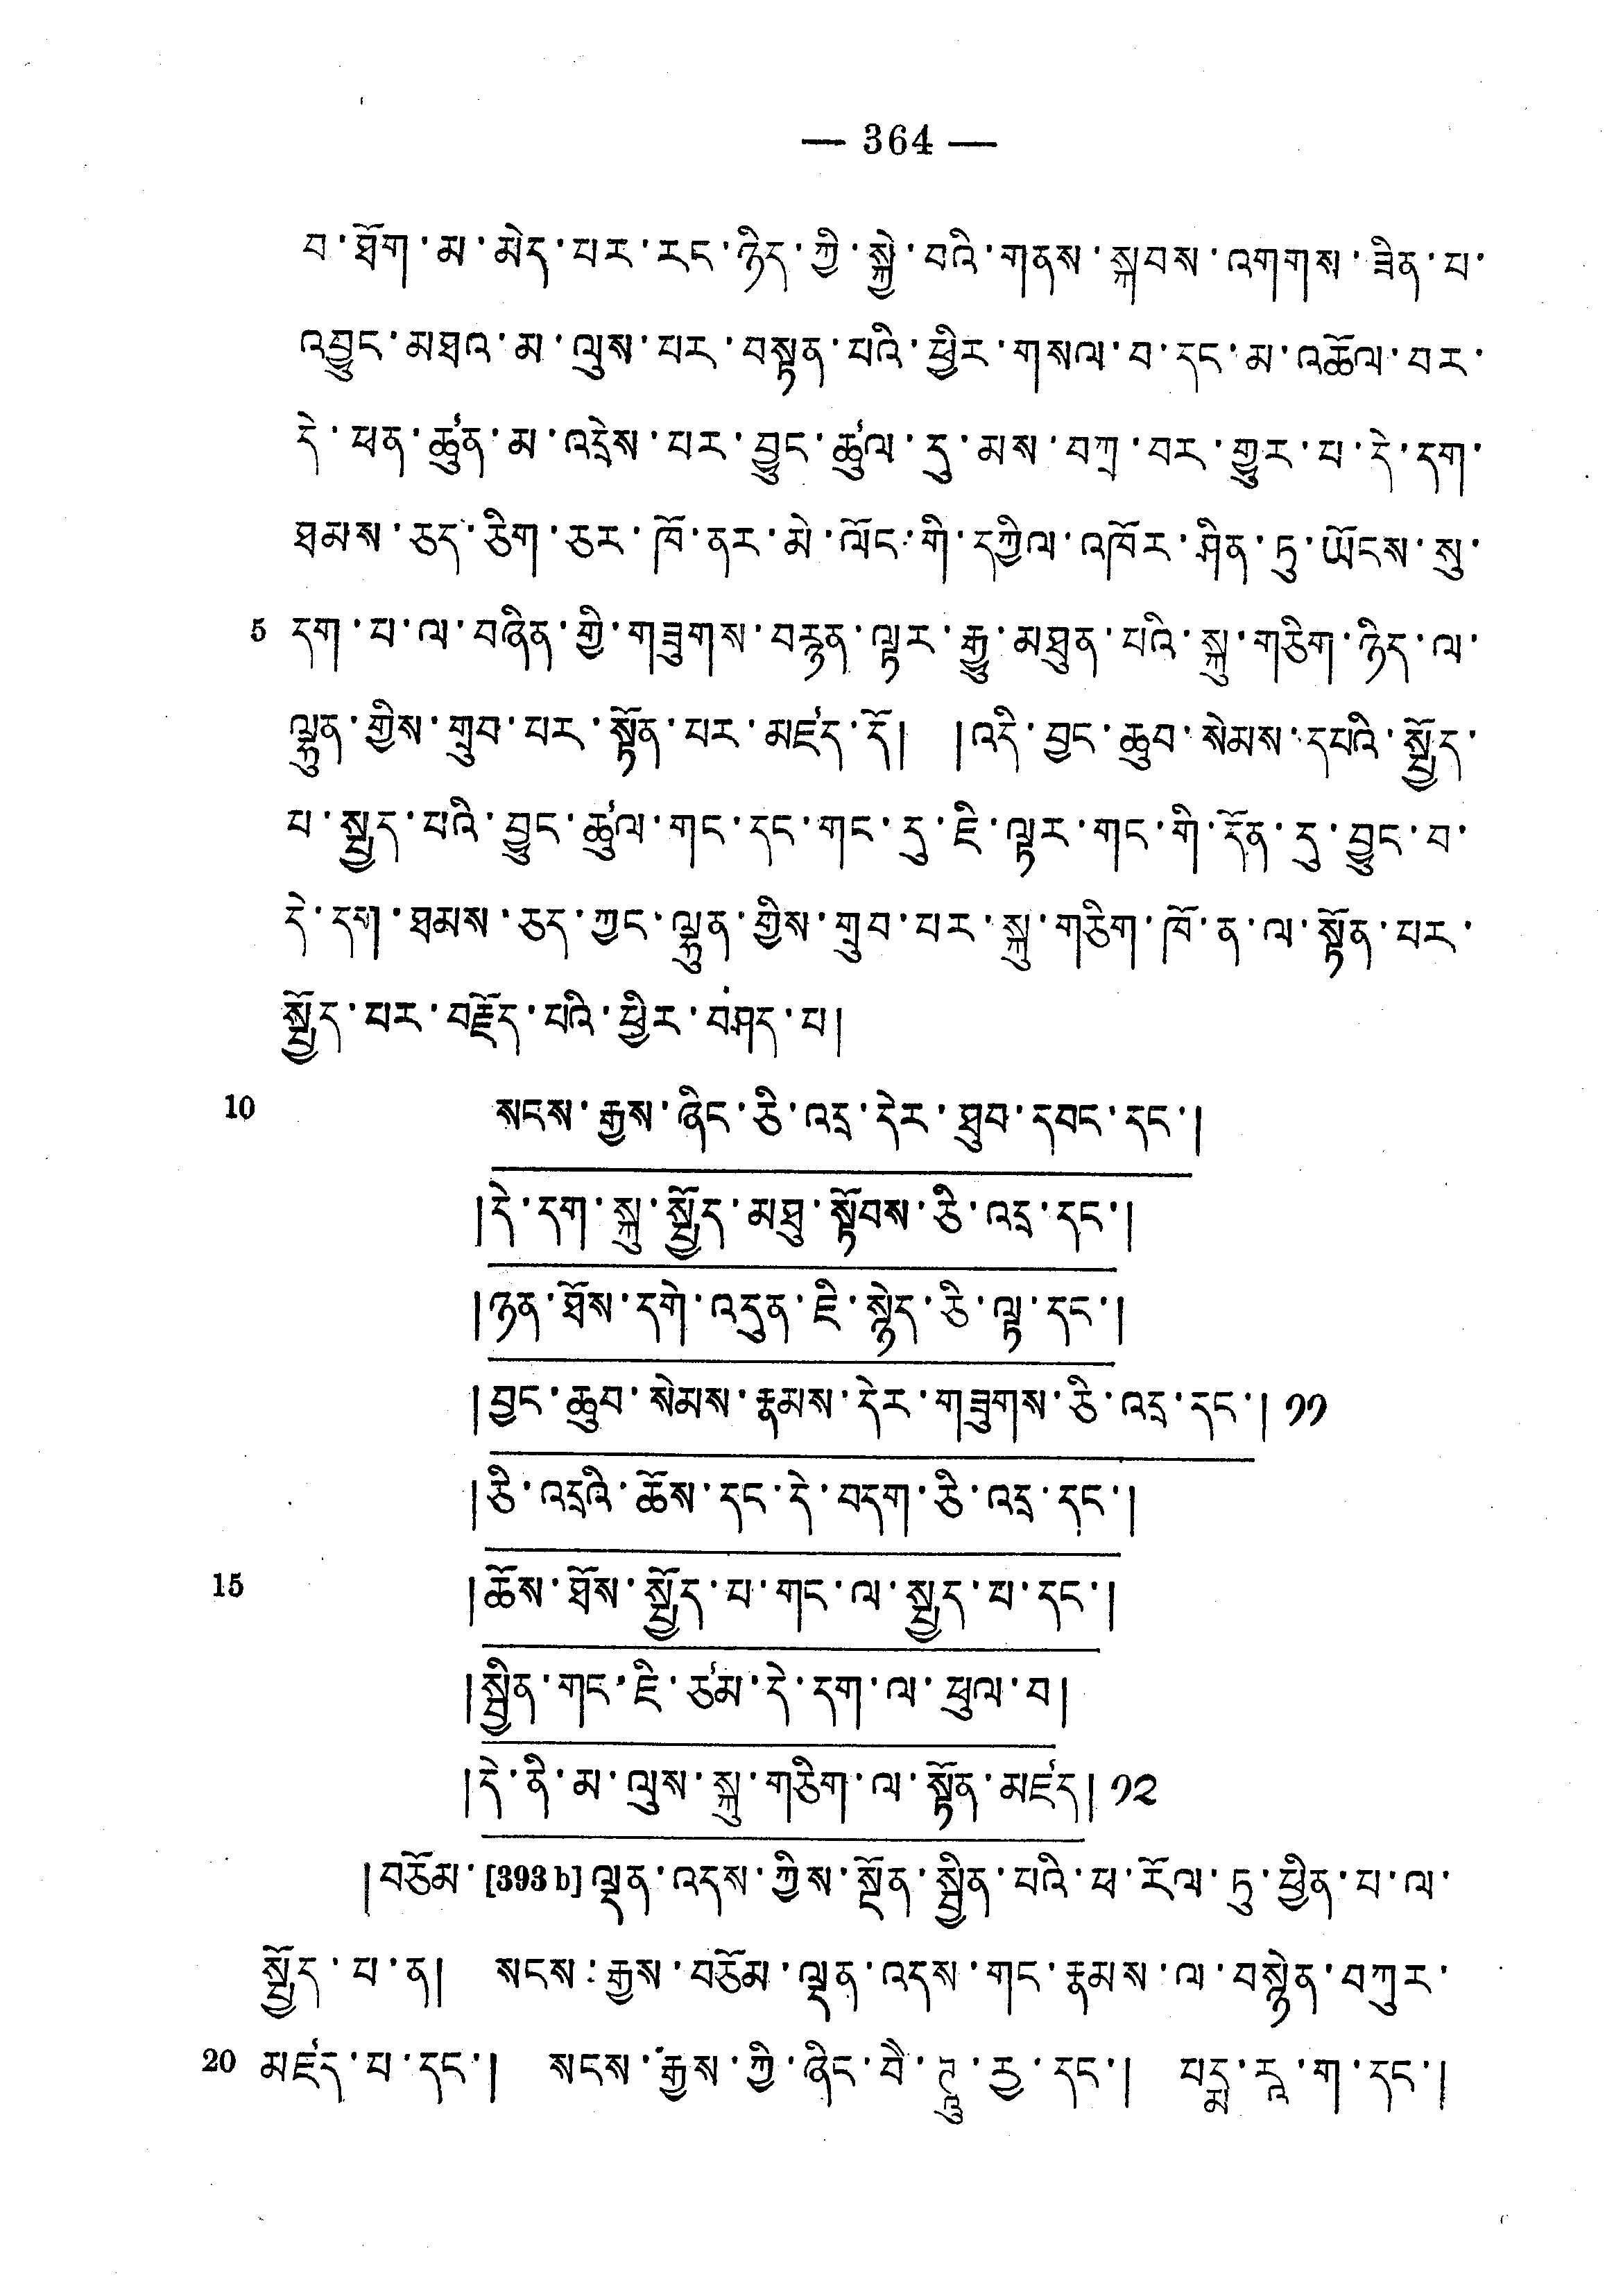 — 364 —
བ་ཐོག་མ་མེད་པར་རང་ཉིད་ཀྱི་སྐྱེ་བའི་གནས་སྐབས་འགགས་ཟིན་པ་
འབྱུང་མཐའ་མ་ལུས་པར་བསྟན་པའི་ཕྱིར་གསལ་བ་དང་མ་འཆོལ་བར་
དེ་ཕན་ཚུན་མ་འདྲེས་པར་བྱུང་ཚུལ་དུ་མས་བཀྲ་བར་གྱུར་པ་དེ་དག་
ཐམས་ཅད་ཅིག་ཅར་ཁོ་ནར་མེ་ལོང་གི་དཀྱིལ་འཁོར་ཤིན་ཏུ་ཡོངས་སུ་
5 དག་པ་ལ་བཞིན་གྱི་གཟུགས་བརྙན་ལྟར་རྒྱུ་མཐུན་པའི་སྐུ་གཅིག་ཉིད་ལ་
ལྷུན་གྱིས་གྲུབ་པར་སྟོན་པར་མཛད་དོ། །འདི་བྱང་ཆུབ་སེམས་དཔའི་སྤྱོད་
པ་སྤྱད་པའི་བྱུང་ཚུལ་གང་དང་གང་དུ་ཇི་ལྟར་གང་གི་དོན་དུ་བྱུང་བ་
དེ་དག་ཐམས་ཅད་ཀྱང་ལྷུན་གྱིས་གྲུབ་པར་སྐུ་གཅིག་ཁོ་ན་ལ་སྟོན་པར་
སྤྱོད་པར་བརྗོད་པའི་ཕྱིར་བཤད་པ།
10 སངས་རྒྱས་ཞིང་ཅི་འདྲ་དེར་ཐུབ་དབང་དང་།
།དེ་དག་སྐུ་སྤྱོད་མཐུ་སྟོབས་ཅི་འདྲ་དང་།
།ཉན་ཐོས་དགེ་འདུན་ཇི་སྙེད་ཅི་ལྟ་དང་།
།བྱང་ཆུབ་སེམས་རྣམས་དེར་གཟུགས་ཅི་འདྲ་དང་། ༡༡
།ཅི་འདྲའི་ཆོས་དང་དེ་བདག་ཅི་འདྲ་དང་།
15 །ཆོས་ཐོས་སྤྱོད་པ་གང་ལ་སྤྱད་པ་དང་།
།སྦྱིན་གང་ཇི་ཙམ་དེ་དག་ལ་ཕུལ་བ།
།དེ་ནི་མ་ལུས་སྐུ་གཅིག་ལ་སྟོན་མཛད། ༡༢
།བཅོམ་[393 b]ལྡན་འདས་ཀྱིས་སྔོན་སྦྱིན་པའི་ཕ་རོལ་ཏུ་ཕྱིན་པ་ལ་
སྤྱོད་པ་ན། སངས་རྒྱས་བཅོམ་ལྡན་འདས་གང་རྣམས་ལ་བསྙེན་བཀུར་
20 མཛད་པ་དང་། སངས་རྒྱས་ཀྱི་ཞིང་བཻ་ཌཱུ་རྱ་དང་། པདྨ་རཱ་ག་དང་།